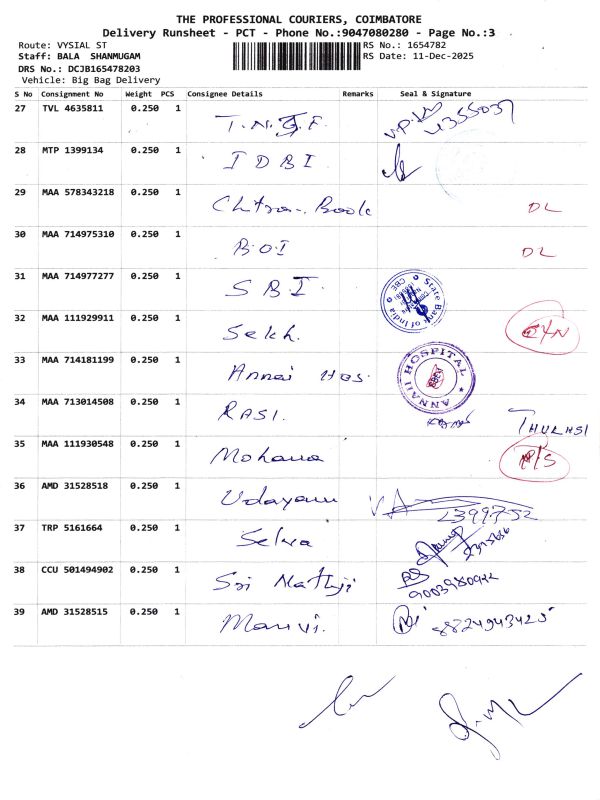 THE PROFESSIONAL COURIERS, COIMBATORE
Delivery Runsheet - PCT - Phone No.:9047080280 - Page No.:3
Route: VYSIAL ST
RS No.: 1654782
Staff: BALA SHANMUGAM
RS Date: 11-Dec-2025
DRS No.: DCJB165478203
Vehicle: Big Bag Delivery
S No Consignment No Weight PCS Consignee Details Remarks Seal & Signature
27 TVL 4635811 0.250 1 T.N.
28 MTP 1399134 0.250 1 IDBI
29 MAA 578343218 0.250 1 Book DL
30 MAA 714975310 0.250 1 B.O.I DL
31 MAA 714977277 0.250 1 SBI State Bank of India CBE
32 MAA 111929911 0.250 1
33 MAA 714181199 0.250 1 Annai Hos. ANNAII HOSPITAL
34 MAA 713014508 0.250 1 RASI. THULASI
35 MAA 111930548 0.250 1 Mohana P/S
36 AMD 31528518 0.250 1 2399752
37 TRP 5161664 0.250 1 Selva
38 CCU 501494902 0.250 1 Sri
39 AMD 31528515 0.250 1